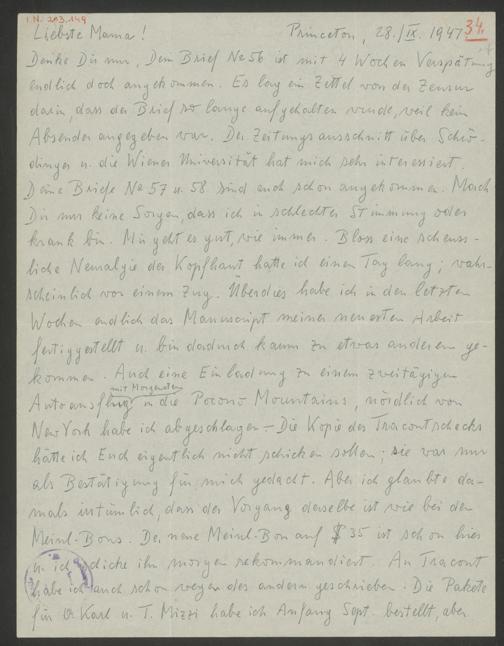 I.N. 203.149
34.
Liebste Mama! Princeton, 28./IX. 1947
Denke Dir nur, Dein Brief No 56 ist mit 4 Wochen Verspätung
endlich doch angekommen. Es lag ein Zettel von der Zensur
darin, dass der Brief so lange aufgehalten wurde, weil kein
Absender angegeben war. Der Zeitungsausschnitt über Schrö-
dinger u. die Wiener Universität hat mich sehr interessiert.
Deine Briefe No 57 u. 58 sind auch schon angekommen. Mach
Dir nur keine Sorgen, dass ich in schlechter Stimmung oder
krank bin. Mir geht es gut, wie immer. Bloss eine scheuss-
liche Neuralgie der Kopfhaut hatte ich einen Tag lang; wahr-
scheinlich von einem Zug. Überdies habe ich in den letzten
Wochen endlich das Manuscript meiner neuesten Arbeit
fertiggestellt u. bin dadurch kaum zu etwas anderem ge-
kommen. Auch eine Einladung zu einem zweitägigen
mit Morgenstern
Autoausflug in die Pocono Mountains, nördlich von
New York habe ich abgeschlagen – Die Kopie des Tracontschecks
hätte ich Euch eigentlich nicht schicken sollen; sie war nur
als Bestätigung für mich gedacht. Aber ich glaubte da-
mals irrtümlich, dass der Vorgang derselbe ist wie bei den
Meinl-Bons. Der neue Meinl-Bon auf $ 35 ist schon hier
u. ich schicke ihn morgen rekommandiert. An Tracont
habe ich auch schon wegen des andern geschrieben. Die Pakete
für O. Karl u. T. Mizzi habe ich Anfang Sept. bestellt, aber